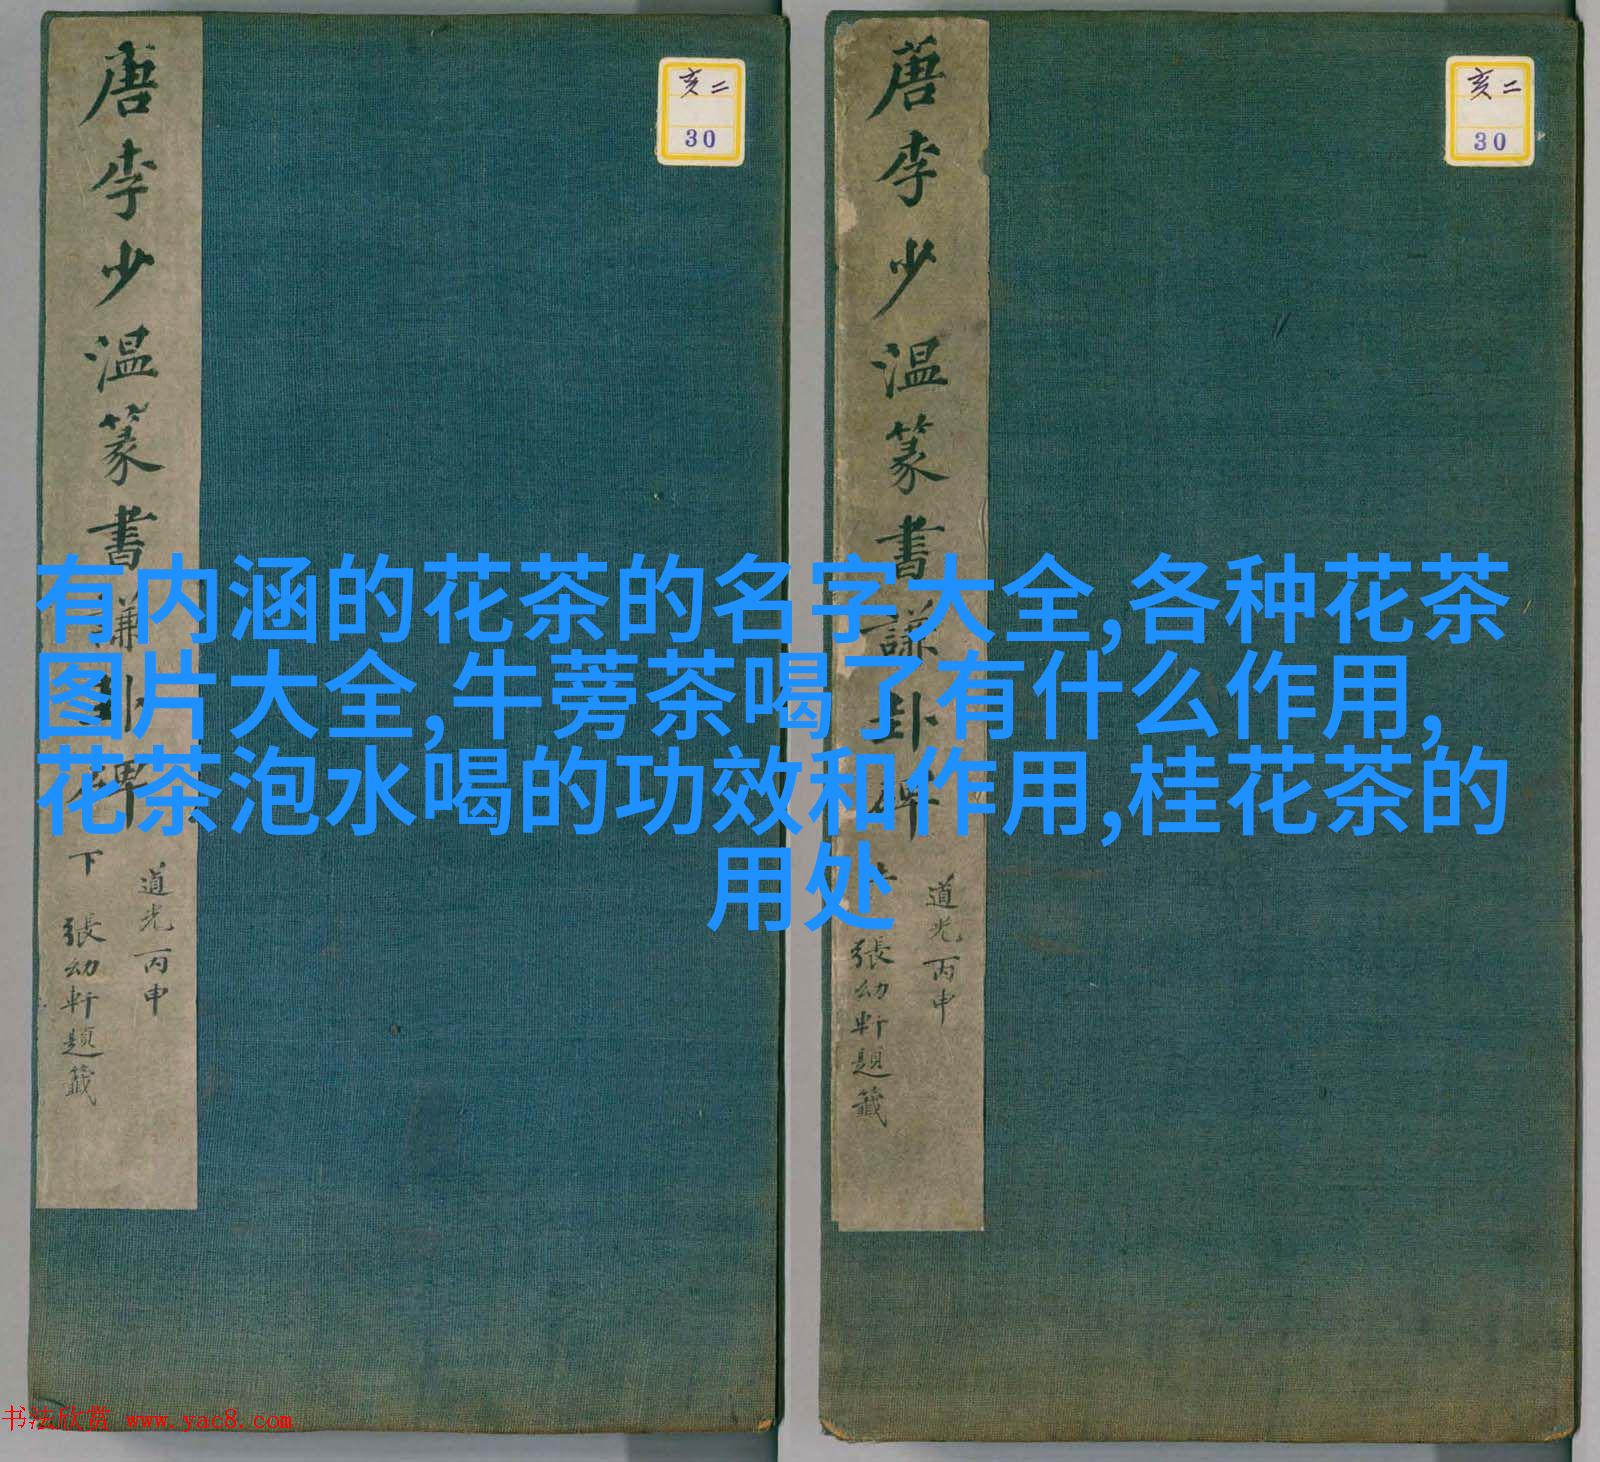 唐李少温篆書謙卦碑
下
道光丙申
張幼軒題籤
亥二
30
唐李少温篆書謙卦碑
道光丙申
張幼軒題籤
亥二
30
有内涵的花茶的名字大全,各种花茶
图片大全,牛蒡茶喝了有什么作用,
花茶泡水喝的功效和作用,桂花茶的
用处
书法欣赏 www.yac8.com